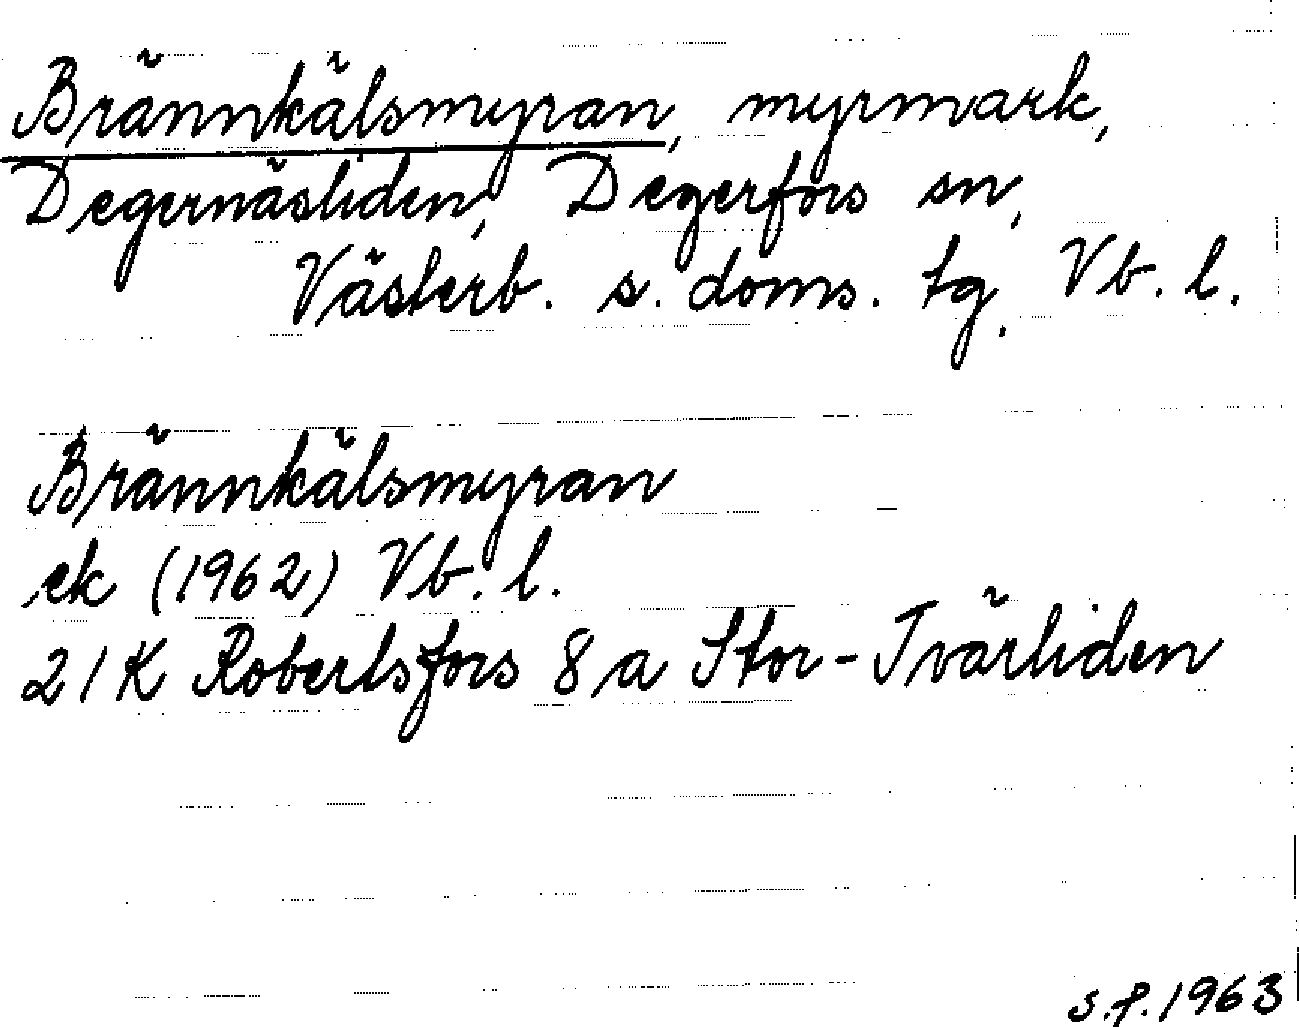 Brännkälsmyran, myrmark,
Degernäsliden, Degerfors sn,
Västerb. s. doms. tg. Vb. l.
Brännkälsmyran
ek (1962) Vb. l.
21K Robertsfors 8a Stor-Tvärliden
s.f. 1963